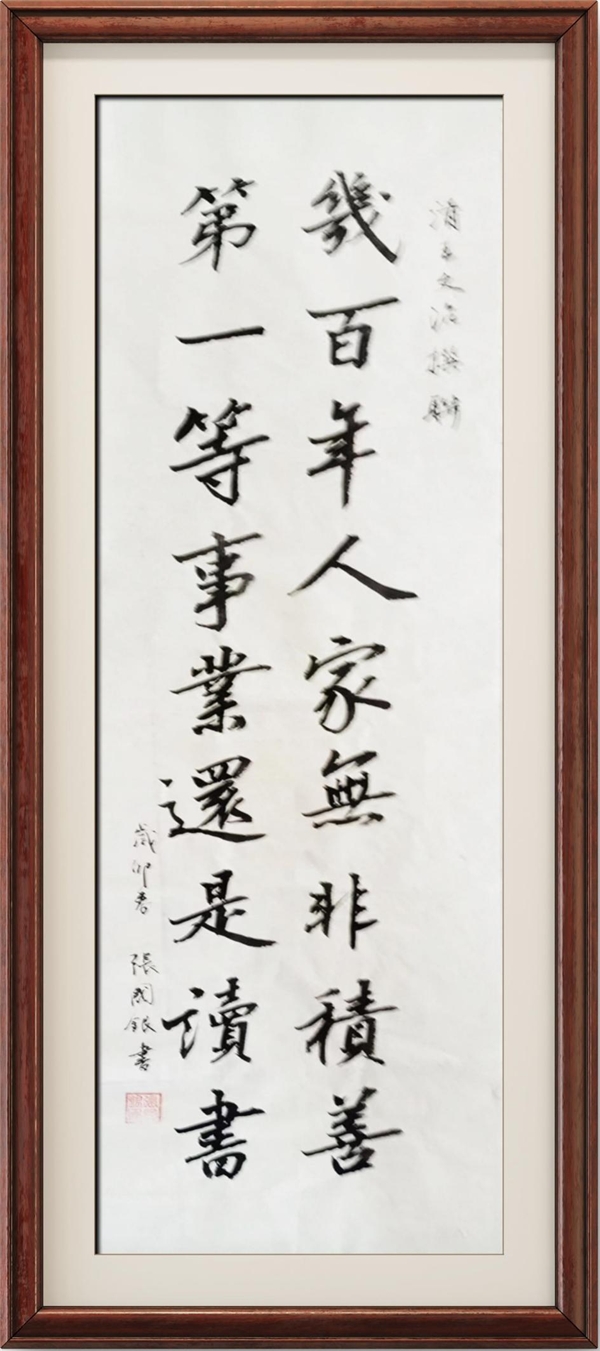 清王文治撰聯
幾百年人家無非積善
第一等事業還是讀書
歲卯春 張國銀書